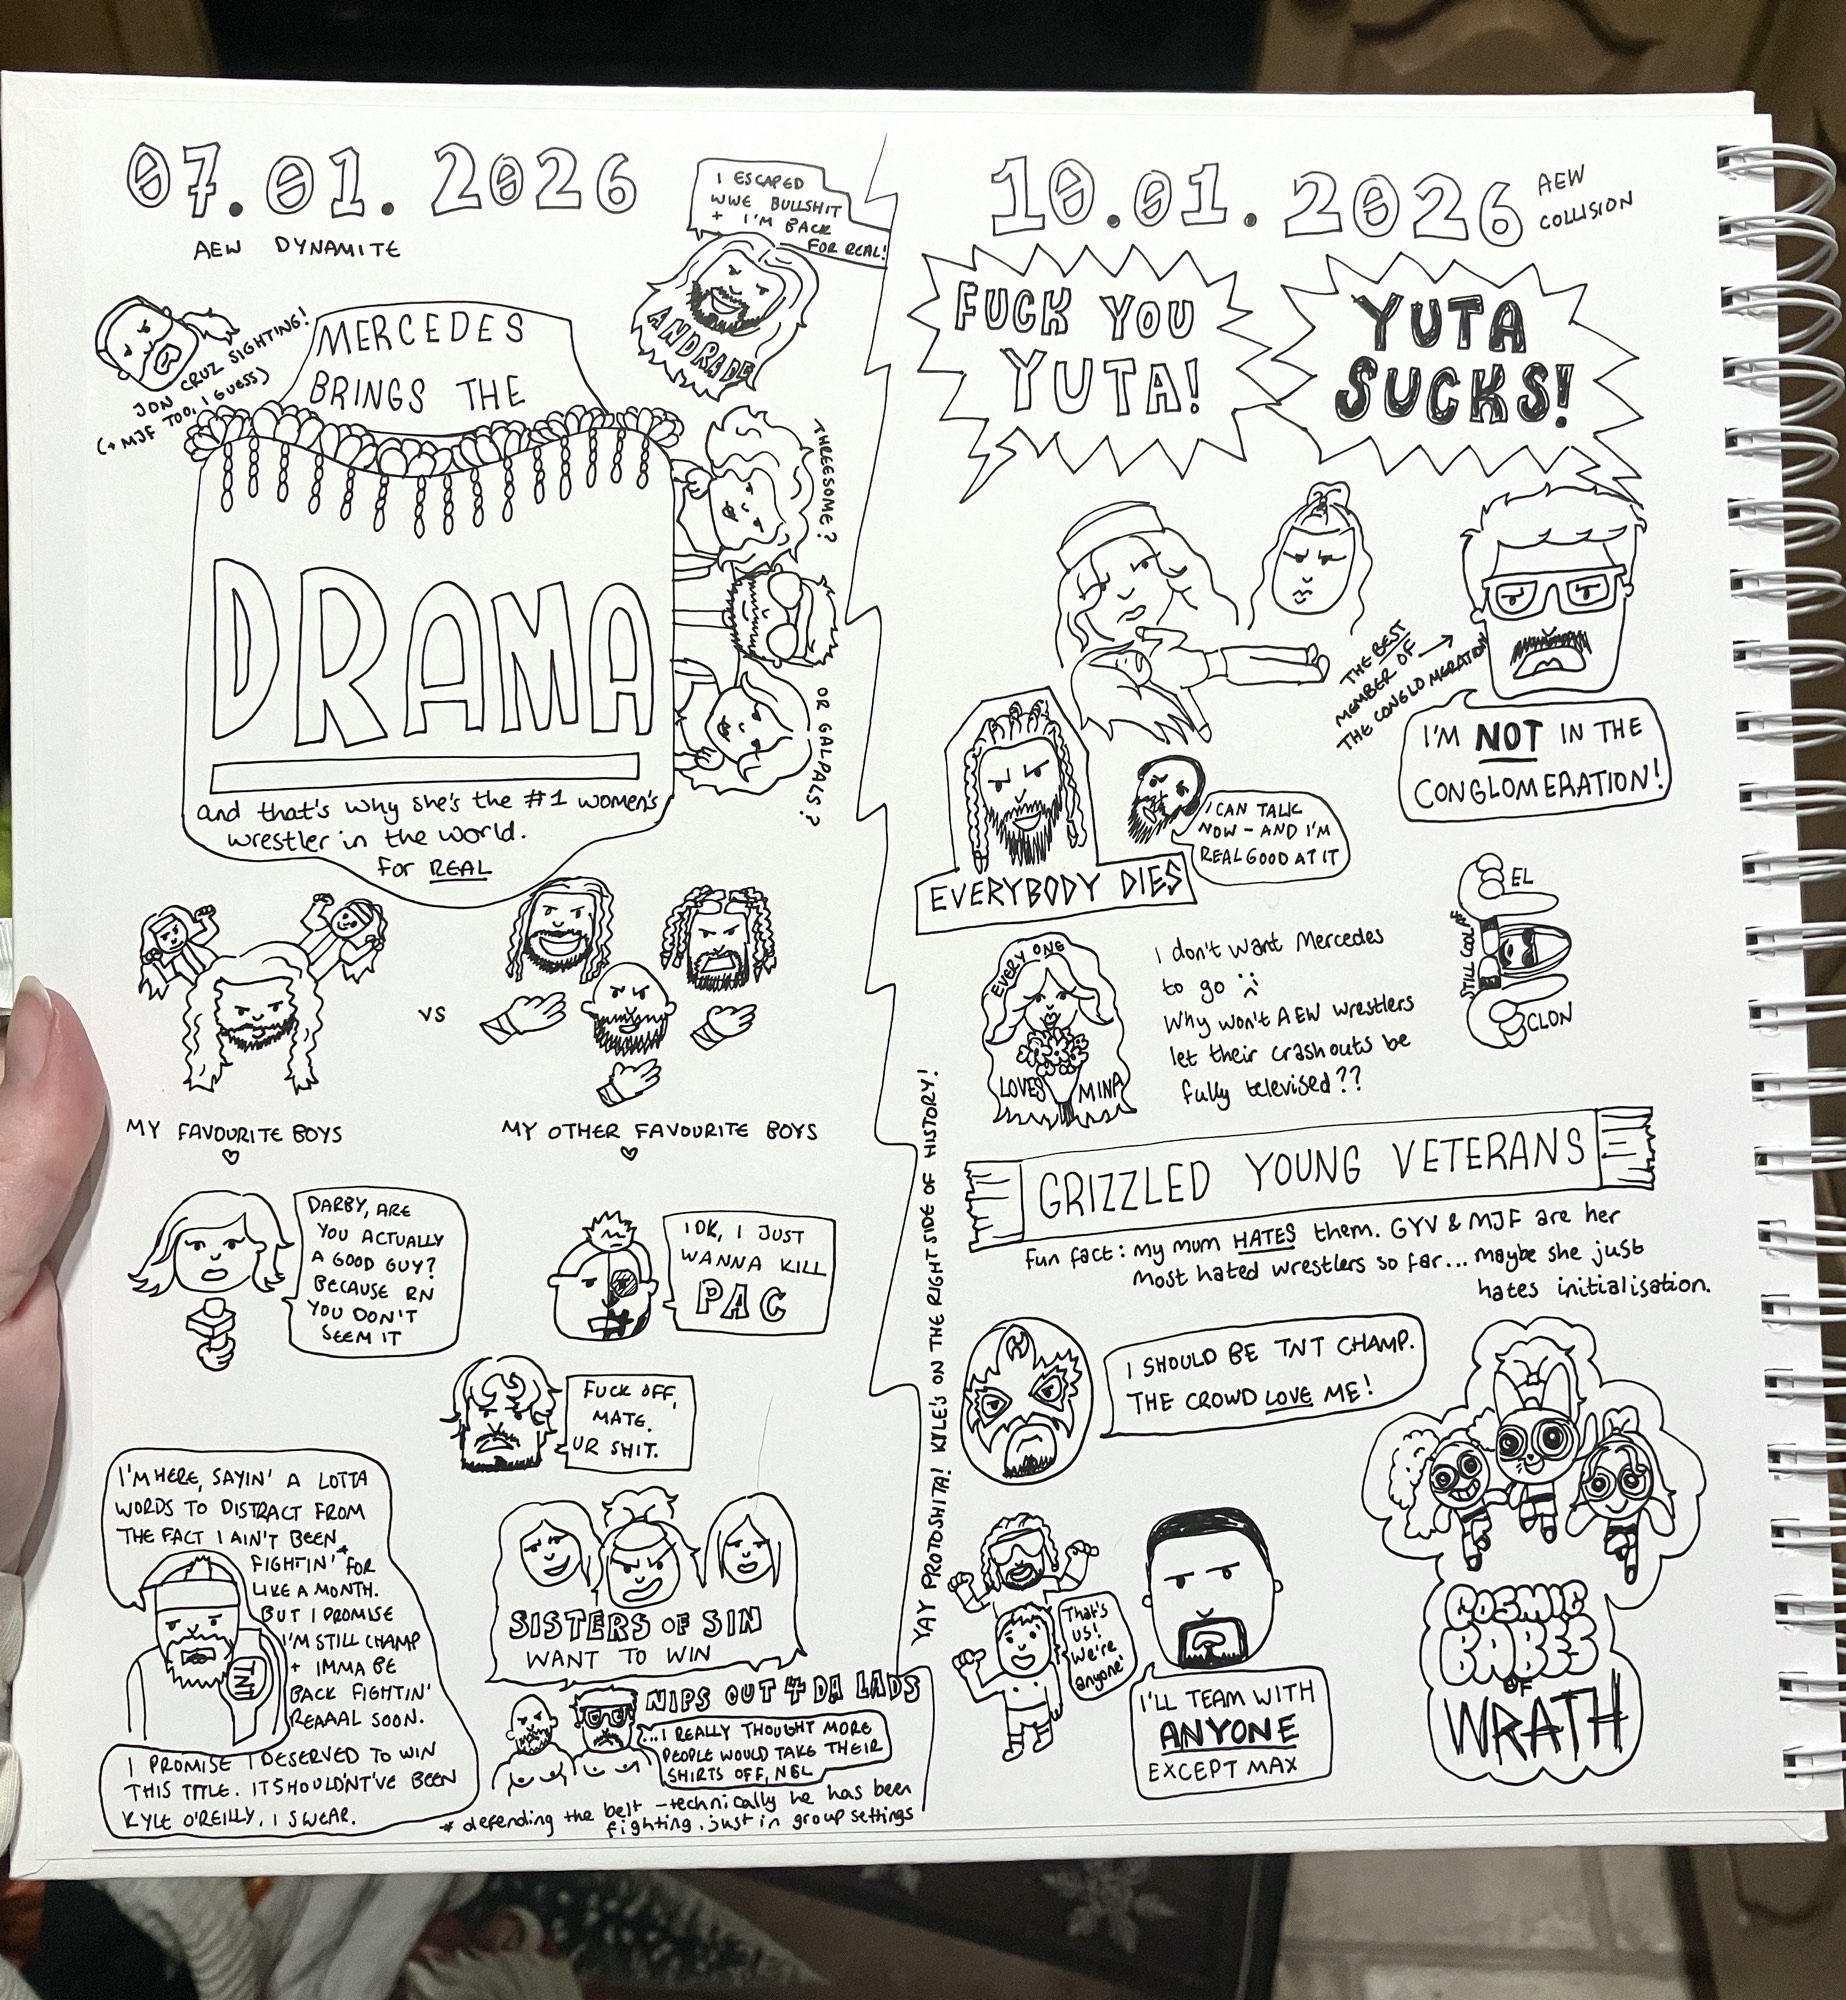 07.01.2026
AEW DYNAMITE
I ESCAPED
WWE BULLSHIT
+ I'M BACK
FOR REAL!
ANDRADE
JON CRUZ SIGHTING!
(+ MJF TOO, I GUESS)
MERCEDES
BRINGS THE
DRAMA
and that's why she's the #1 women's
wrestler in the world.
For REAL
THREESOME?
OR GALPALS?
VS
MY FAVOURITE BOYS
MY OTHER FAVOURITE BOYS
DARBY, ARE
YOU ACTUALLY
A GOOD GUY?
BECAUSE RN
YOU DON'T
SEEM IT
IDK, I JUST
WANNA KILL
PAC
FUCK OFF,
MATE.
UR SHIT.
I'M HERE, SAYIN' A LOTTA
WORDS TO DISTRACT FROM
THE FACT I AIN'T BEEN
FIGHTIN'* FOR
LIKE A MONTH.
BUT I PROMISE
I'M STILL CHAMP
+ IMMA BE
BACK FIGHTIN'
REAAAL SOON.
I PROMISE I DESERVED TO WIN
THIS TITLE. IT SHOULDN'T'VE BEEN
KYLE O'REILLY, I SWEAR.
TNT
SISTERS OF SIN
WANT TO WIN
NIPS OUT 4 DA LADS
...I REALLY THOUGHT MORE
PEOPLE WOULD TAKE THEIR
SHIRTS OFF, NGL
* defending the belt - technically he has been
fighting, just in group settings
YAY PROTOSHITA! KYLE'S ON THE RIGHT SIDE OF HISTORY!
10.01.2026
AEW
COLLISION
FUCK YOU
YUTA!
YUTA
SUCKS!
THE BEST
MEMBER OF
THE CONGLOMERATION
I'M NOT IN THE
CONGLOMERATION!
EVERYBODY DIES
I CAN TALK
NOW - AND I'M
REAL GOOD AT IT
EVERY ONE
LOVES MINA
I don't want Mercedes
to go :(
Why won't AEW wrestlers
let their crashouts be
fully televised??
EL
CLON
STILL COOL AF
GRIZZLED YOUNG VETERANS
Fun fact: my mum HATES them. GYV & MJF are her
most hated wrestlers so far... maybe she just
hates initialisation.
I SHOULD BE TNT CHAMP.
THE CROWD LOVE ME!
That's
us!
We're
anyone!
I'LL TEAM WITH
ANYONE
EXCEPT MAX
COSMIC
BABES
OF
WRATH